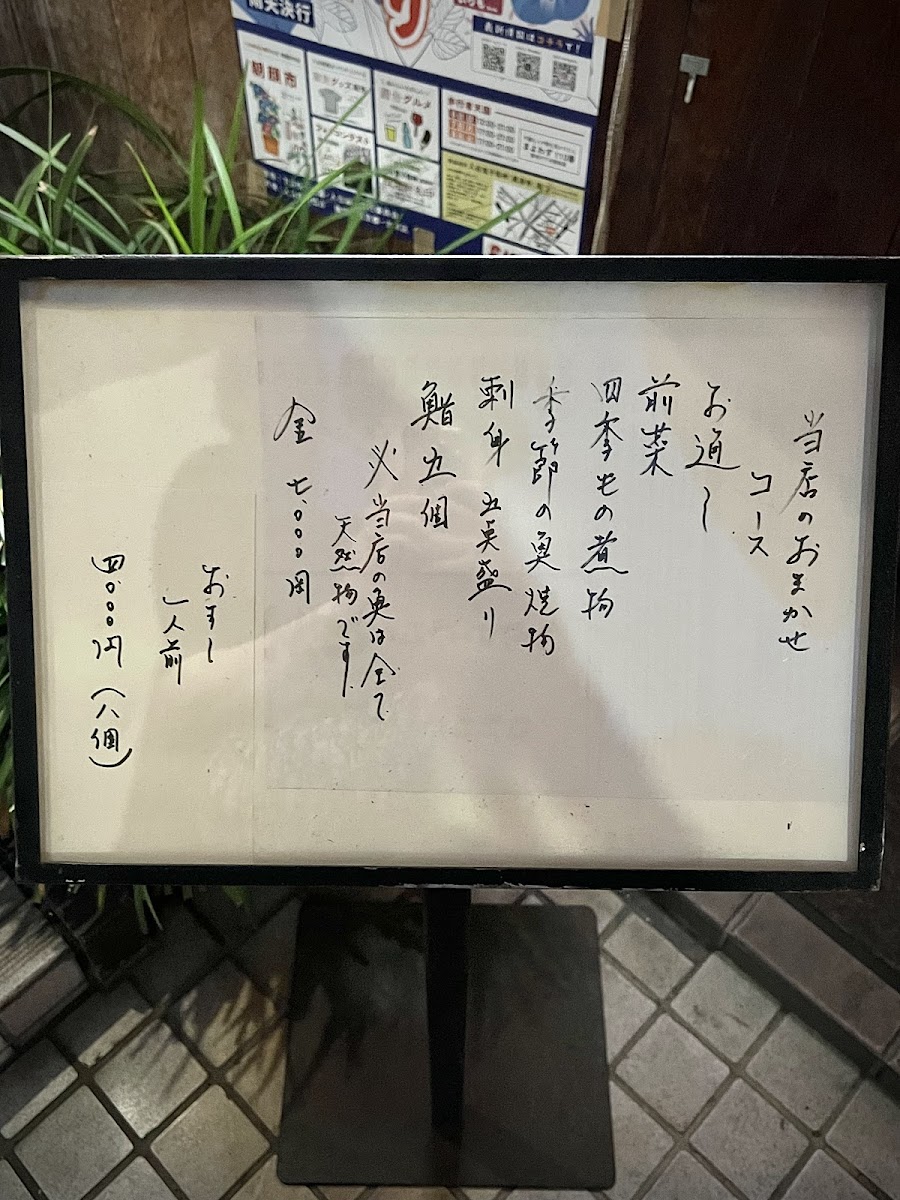 雨天決行
り
最新情報はコチラで!
朝顔市
歩行者天国
当店のおまかせ
コース
お通し
前菜
四季もの煮物
季節の魚焼物
刺身 五点盛り
鮨五個
※当店の魚は全て
天然物です
金 七、〇〇〇円
おすし
一人前
四、〇〇〇円(八個)